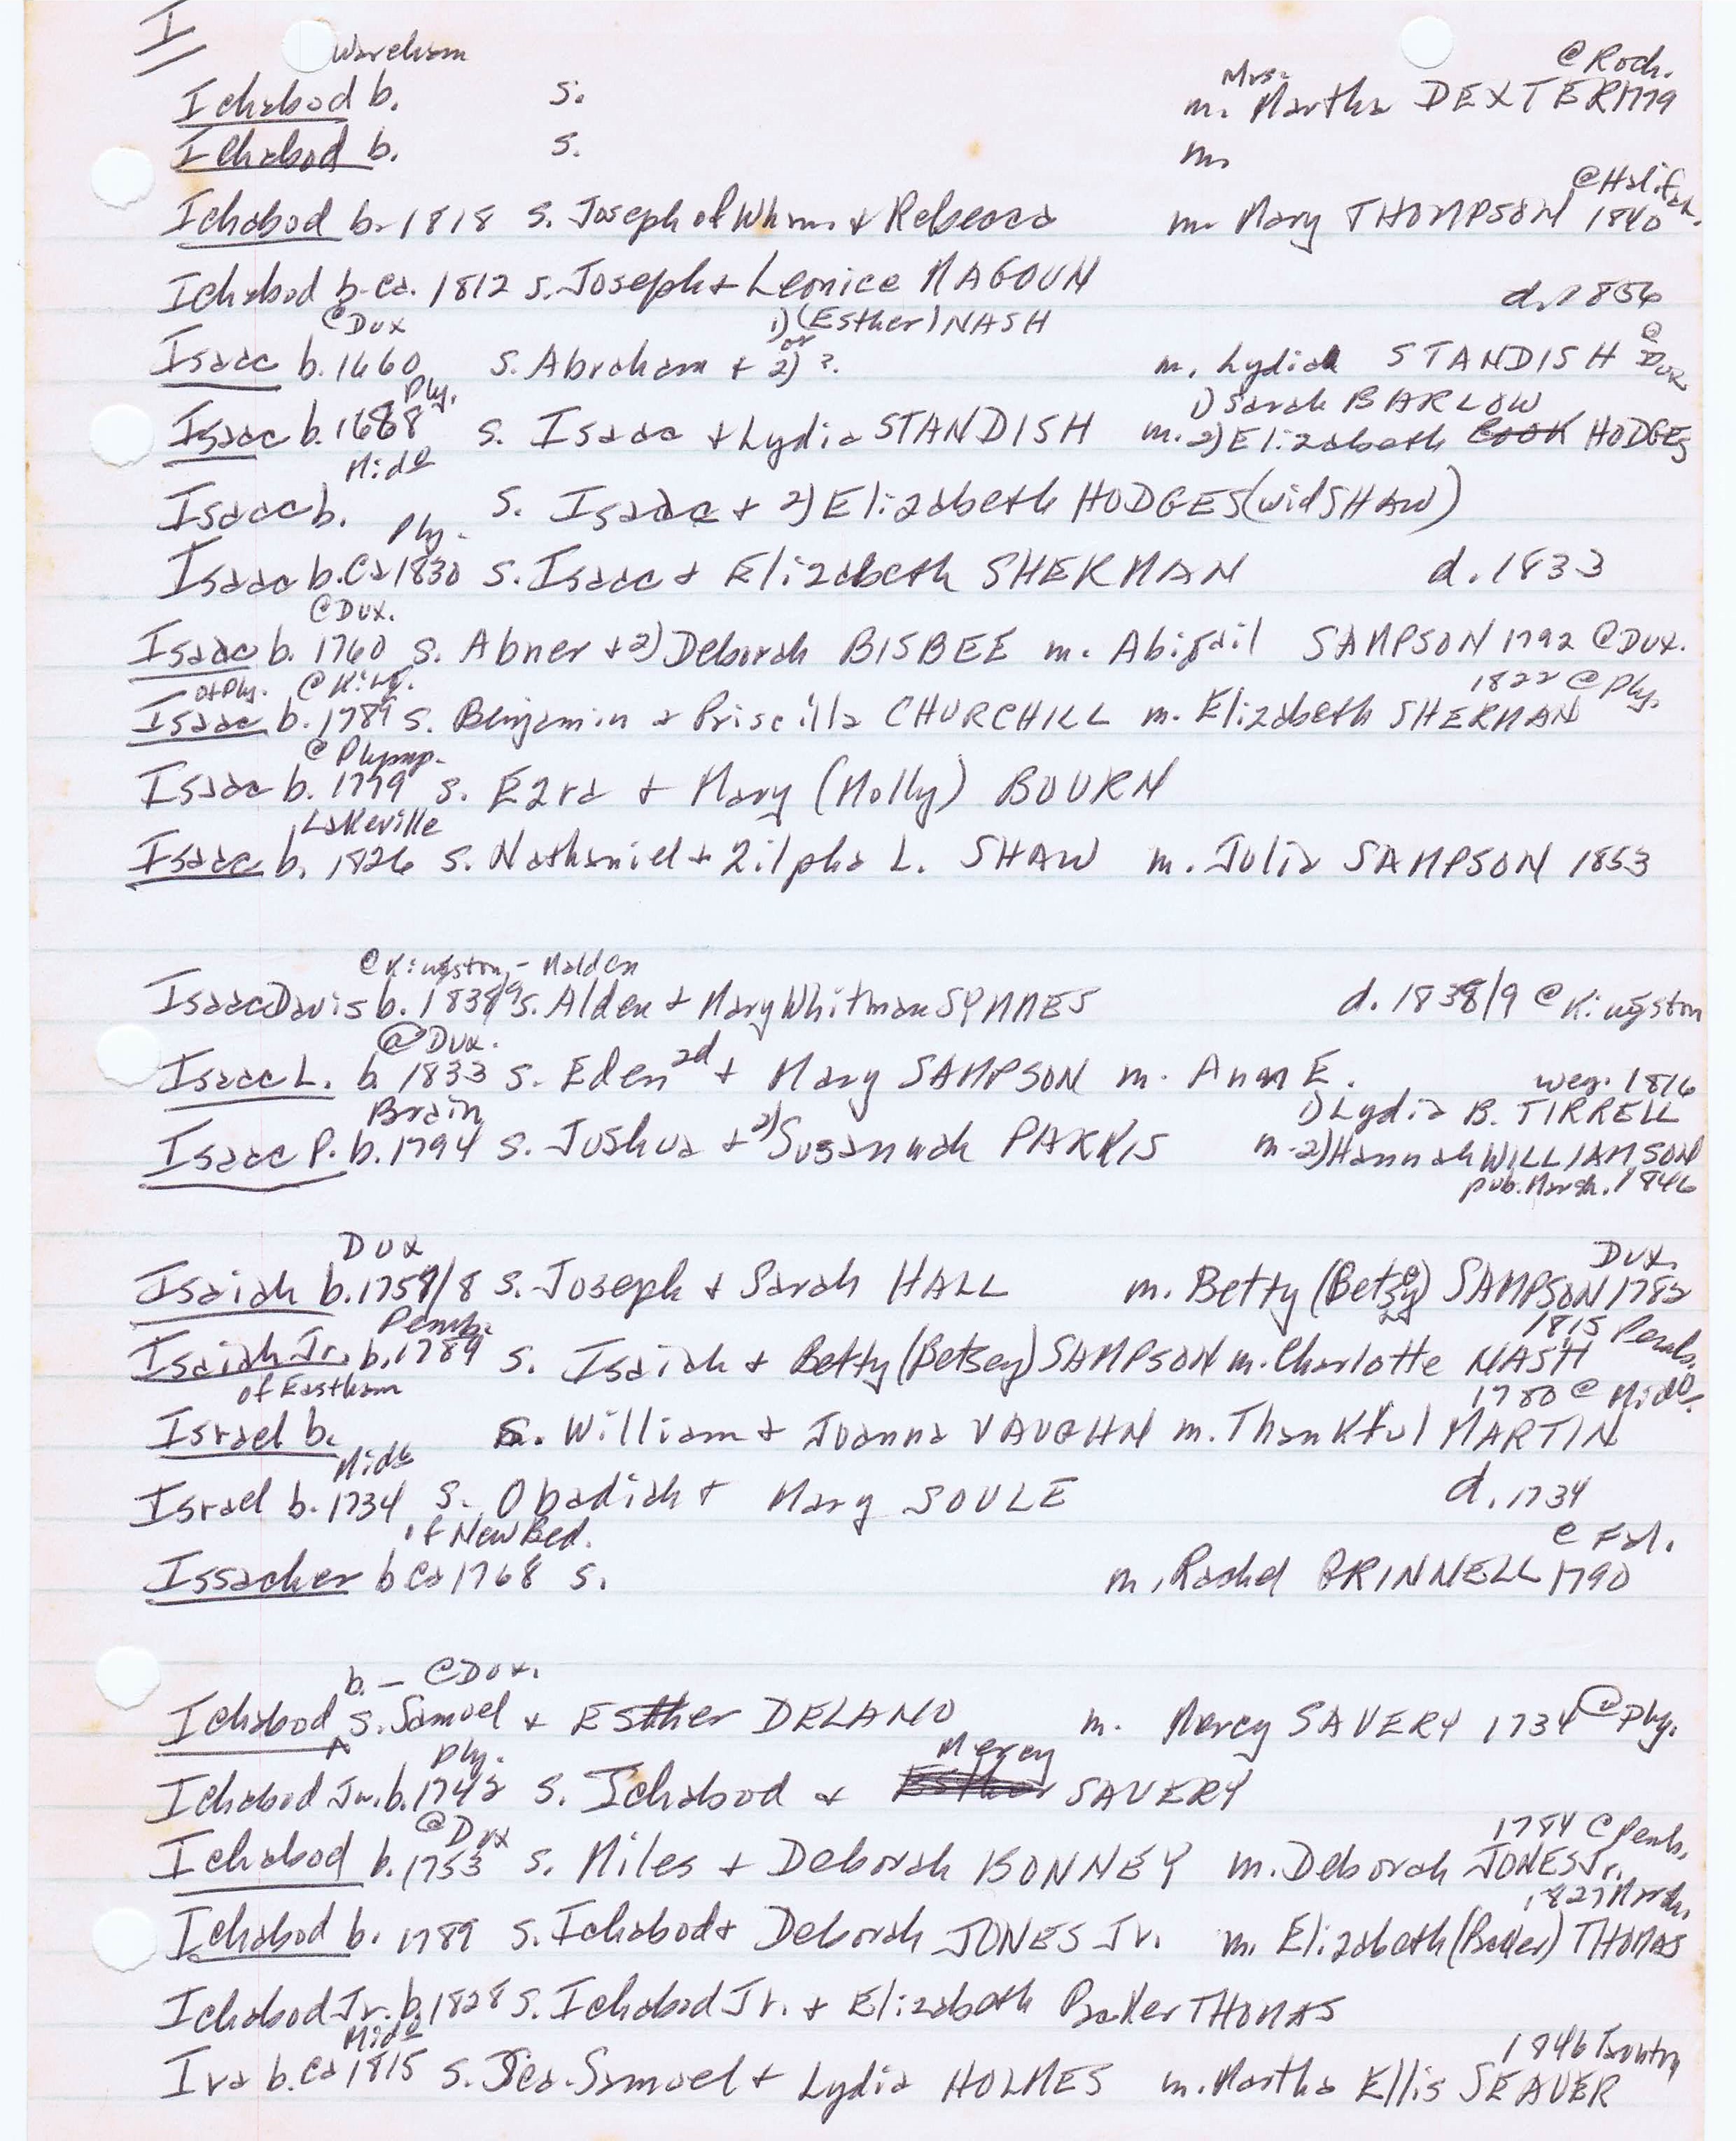 I
Wareham
Mrs. @Roch.
Ichabod b. s. m. Martha DEXTER 1779
Ichabod b. s. m.
@Halifax.
Ichabod b. 1818 s. Joseph of Wham. & Rebecca m. Mary THOMPSON 1840
Ichabod b. ca. 1812 s. Joseph & Leonice MAGOUN d. 1856
@Dux 1) (Esther) NASH @
or
Isaac b. 1660 s. Abraham + 2) ? m. Lydia STANDISH Dux
Ply. 1) Sarah BARLOW
Isaac b. 1688 s. Isaac + Lydia STANDISH m. 2) Elizabeth COOK HODGES
Mido
Isaac b. s. Isaac + 2) Elizabeth HODGES (wid SHAW)
Ply.
Isaac b. Ca 1830 s. Isaac & Elizabeth SHERMAN d. 1833
@Dux.
Isaac b. 1760 s. Abner + 2) Deborah BISBEE m. Abigail SAMPSON 1792 @Dux.
of Ply. @King. 1822 @ Ply.
Isaac b. 1789 s. Benjamin & Priscilla CHURCHILL m. Elizabeth SHERMAN
@ Plymp.
Isaac b. 1779 s. Ezra + Mary (Molly) BOURN
Lakeville
Isaac b. 1826 s. Nathaniel + Zilpha L. SHAW m. Julia SAMPSON 1853
@Kingston - Malden
Isaac Davis b. 1838/9 s. Alden + Mary Whitman SYMMES d. 1838/9 @ Kingston
@Dux.
Isaac L. b. 1833 s. Eden 2d + Mary SAMPSON m. Ann E.
Brain 1) Lydia B. TIRRELL wey. 1816
Isaac P. b. 1794 s. Joshua + 2) Susannah PARRIS m. 2) Hannah WILLIAMSON
pub. Marsh. 1846
Dux Dux.
Isaiah b. 1759/8 s. Joseph + Sarah HALL m. Betty (Betsey) SAMPSON 1782
Pemb. 1815 Pemb.
Isaiah Jr. b. 1789 s. Isaiah + Betty (Betsey) SAMPSON m. Charlotte NASH
of Eastham 1780 @ Mido.
Israel b. s. William + Joanna VAUGHN m. Thankful MARTIN
Mido
Israel b. 1734 s. Obadiah + Mary SOULE d. 1734
of New Bed. @ Fal.
Issacher b Ca 1768 s. m. Rachel GRINNELL 1790
b. - @Dux.
Ichabod s. Samuel + Esther DELANO m. Mercy SAVERY 1734 @ Ply.
Ply. Mercy
Ichabod Jr. b. 1742 s. Ichabod & Esther SAVERY
@Dux 1784 @ Pemb.
Ichabod b. 1753 s. Miles + Deborah BONNEY m. Deborah JONES Jr.
1827 Marsh.
Ichabod b. 1789 s. Ichabod + Deborah JONES Jr. m. Elizabeth (Baker) THOMAS
Ichabod Jr. b. 1828 s. Ichabod Jr. + Elizabeth Baker THOMAS
Mido 1846 Taunton
Ira b. Ca 1815 s. Dea. Samuel + Lydia HOLMES m. Martha Ellis SEAVER